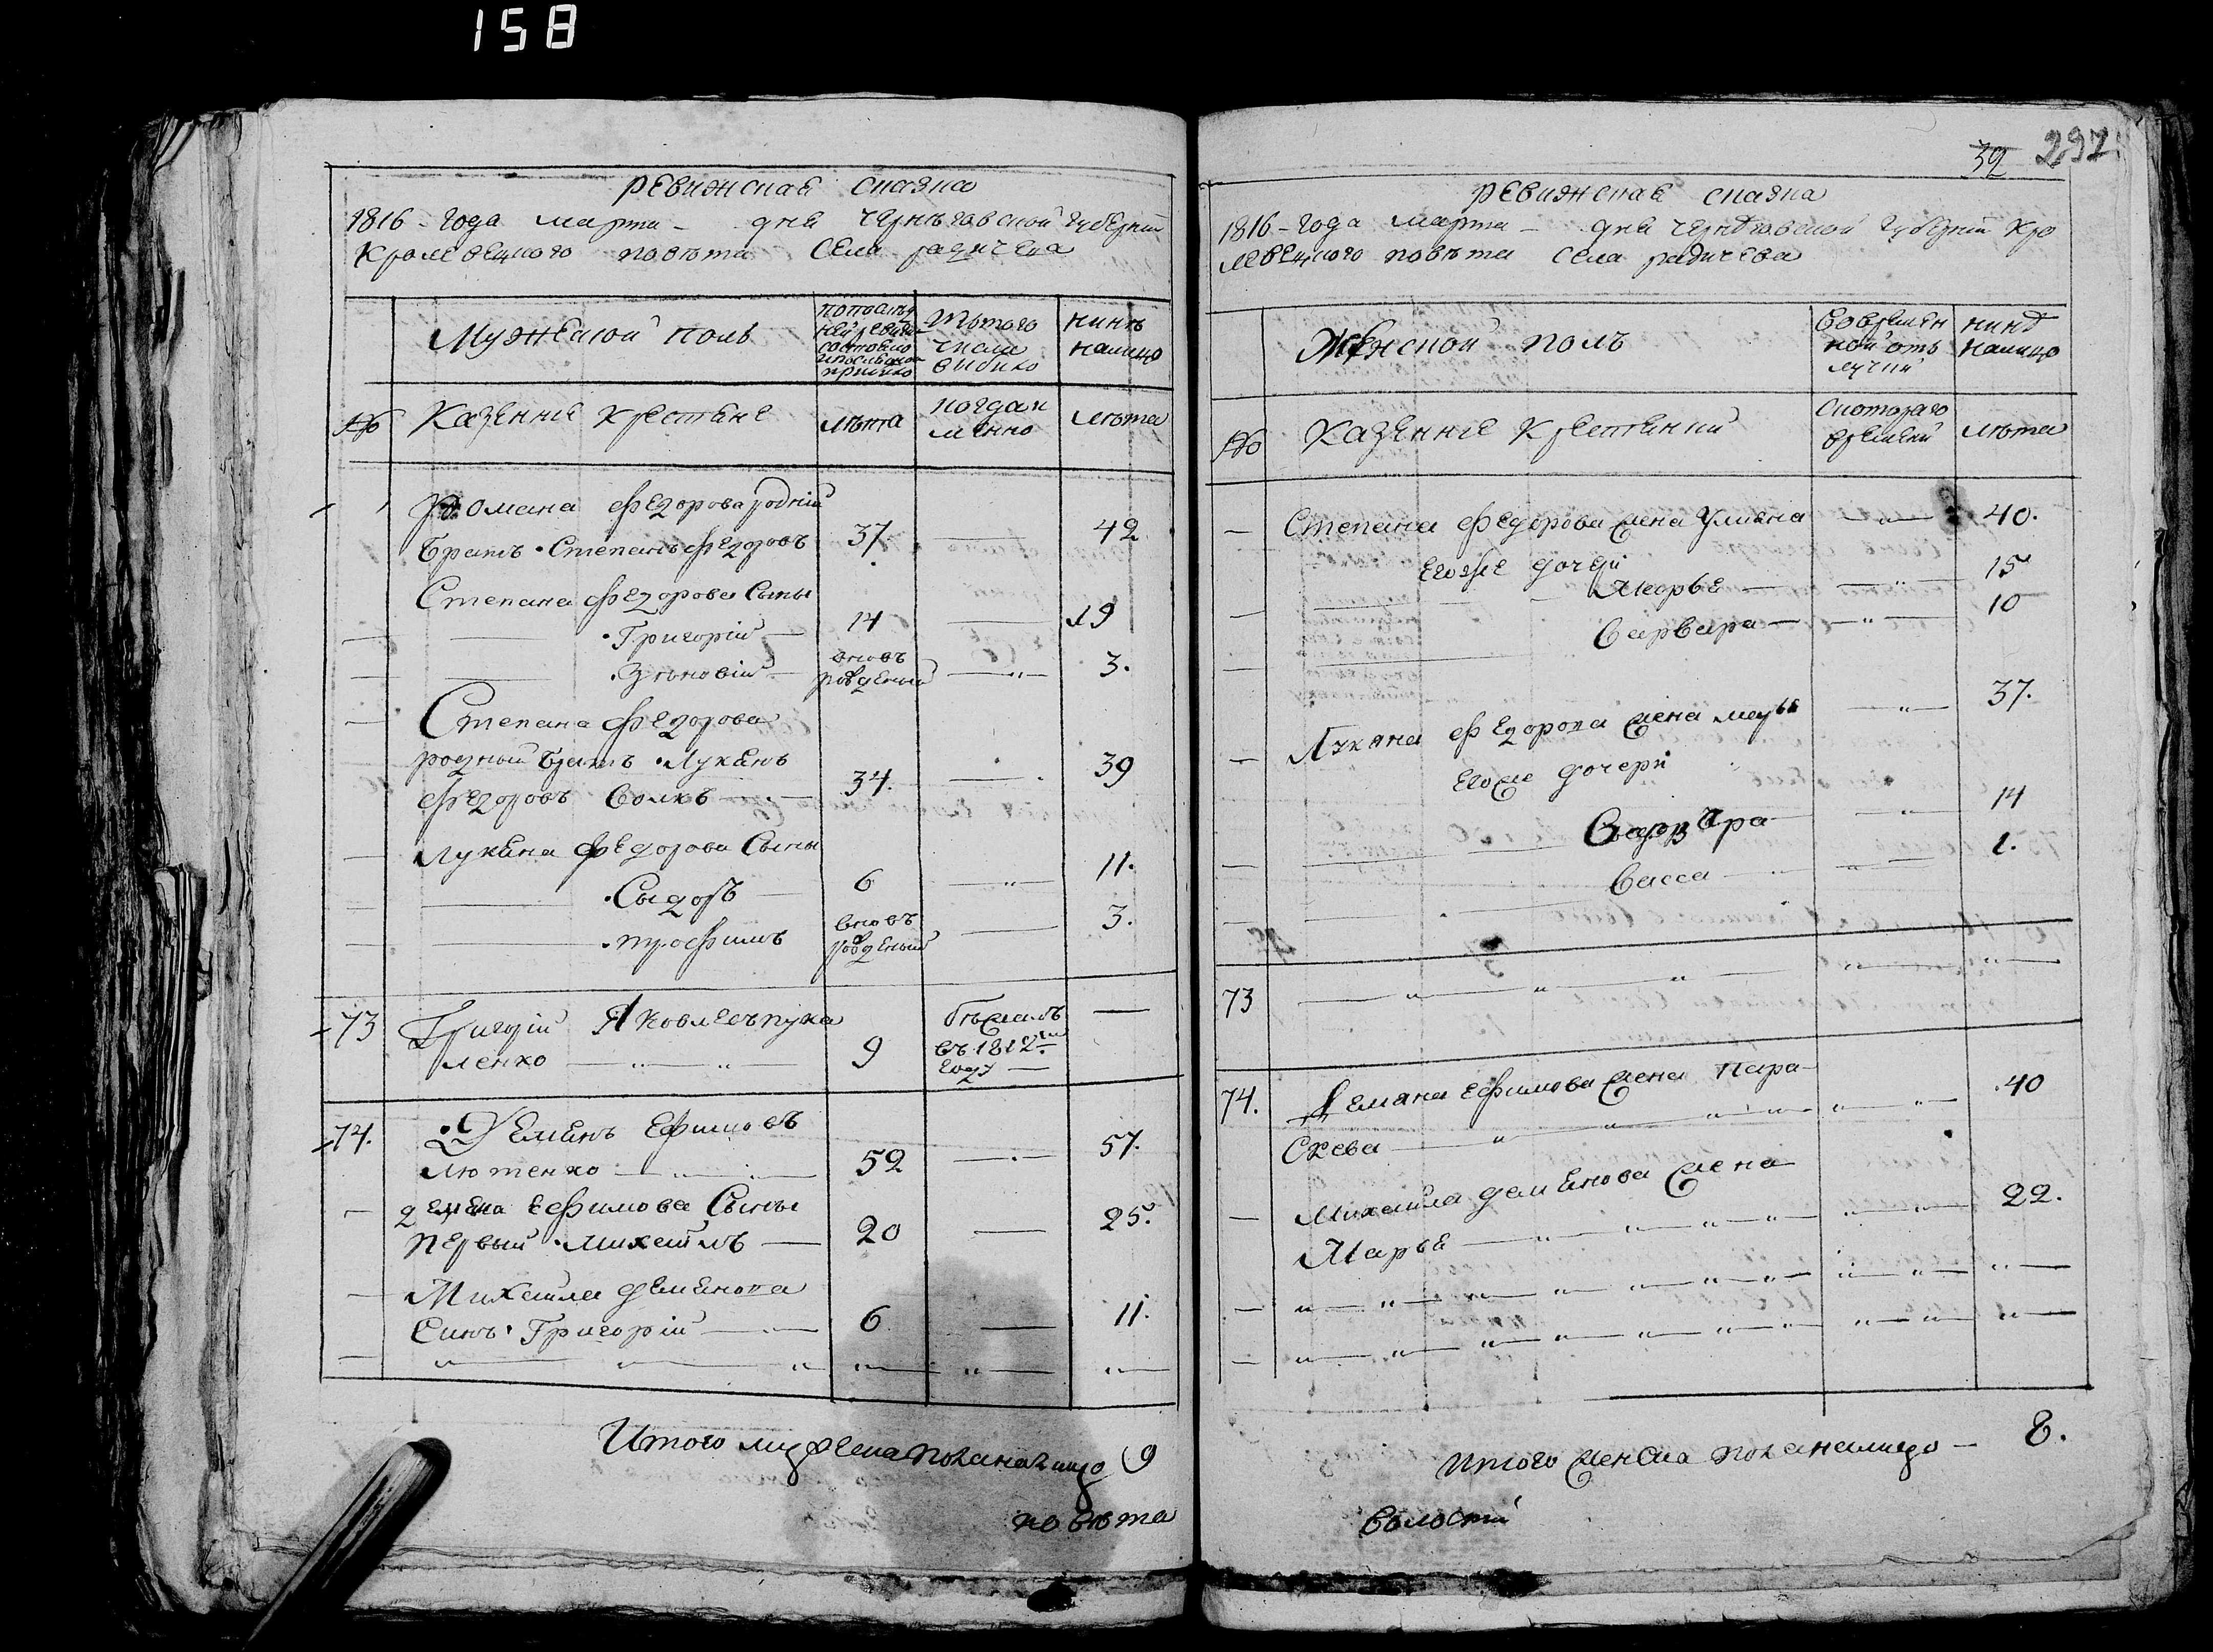 158
Ревижская сказка
1816 - года марта - дня Чернѣговской губерніи
Кролевецкого повѣта Села радичева
Мужеской полъ
Попослѣд
ней ревизіи
состояло
ипослѣ оной
прибило
Изтого
числа
вибило
нинѣ
налицо
№ Казенніе крестяне
лѣта
когдаи
менно
лѣта
Романа Федорова родній
братъ Степанъ Федоровъ 37 42
Степана Федорова Сыны
Григорій 14 19
Зѣновій вновь рожденый 3.
Степана Федорова
родный братъ Лукянъ
Федоровъ Волкъ 34. 39
Лукяна Федорова Сыны
Сыдоръ 6 11.
трофимъ вновь рожденый 3.
73 Григорій Яковлевъ пука
ленко 9 бѣжалъ въ 1812м году
74. Демянъ Ефимовъ
Лютенко 52 57.
демяна Ефимова Сыны
первый Михайлъ 20 25.
Михайла демянова
Синъ Григорій 6 11.
Итого мужеска пола налицо 9
повѣта
32 297.
Ревижская сказка
1816 - года марта - дня Чернѣговской губерніи Кро
левецкого повѣта села радичева
Женской полъ
Вовремен
ной отъ
лучки
нинѣ
налицо
№ Казенніе Крестянки
Скоторого
времени
лѣта
Степана Федорова жена Уляна 40.
Егоже дочери
Марья 15
Варвара 10
Лукяна Федорова жена 37.
Егоже дочери
Варвара 14
Васса 1.
73
74. Демяна Ефимова жена Пара-
Скева 40
Михайла демянова жена
Марья 22.
Итого женска пола налицо - 8.
волости